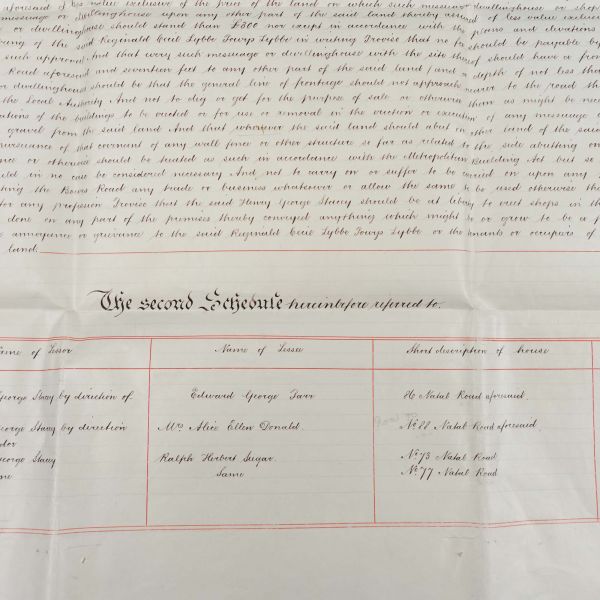 aforesaid of less value exclusive of the price of the land on which such messuage or dwellinghouse or shop
messuage or dwellinghouse upon any other part of the said land thereby assured of less value exclusive
or dwellinghouse should stand than £300 nor except in accordance with the plans and elevations
of the said Reginald Cecil Lybbe Powys Lybbe in writing Provided that no should be payable by
such approval And that every such messuage or dwellinghouse with the site thereof should have a
Road aforesaid and seventeen feet to any other part of the said land and a depth of not less than
or dwellinghouse should be that the general line of frontage should not approach nearer to the road
the Local Authority And not to dig or get for the purpose of sale or otherwise them as might be
of the buildings to be erected or for use or removal in the erection or execution of any messuage or
gravel from the said land And that wherever the said land should abut on other land of the said
pursuance of that covenant of any wall fence or other structure so far as related to the side abutting on
or otherwise should be treated as such in accordance with the Metropolitan Building Act but so
in no case be considered necessary And not to carry on or suffer to be carried on upon any
the Bowes Road any trade or business whatsoever or allow the same to be used otherwise than
for any profession Provided that the said Henry George Stacey should be at liberty to erect shops in
done in or any part of the premises thereby conveyed anything which might be or grow to be a
annoyance or grievance to the said Reginald Cecil Lybbe Powys Lybbe or the tenants or occupiers of
land.
The second Schedule hereinbefore referred to.
Name of Lessor Name of Lessee Short description of house
George Stacey by direction of Edward George Tarr 86 Natal Road aforesaid
George Stacey by direction Mrs Alice Ellen Donald. No. 88 Natal Road aforesaid
George Stacey Ralph Herbert Sugar. No. 75 Natal Road
Same No. 77 Natal Road